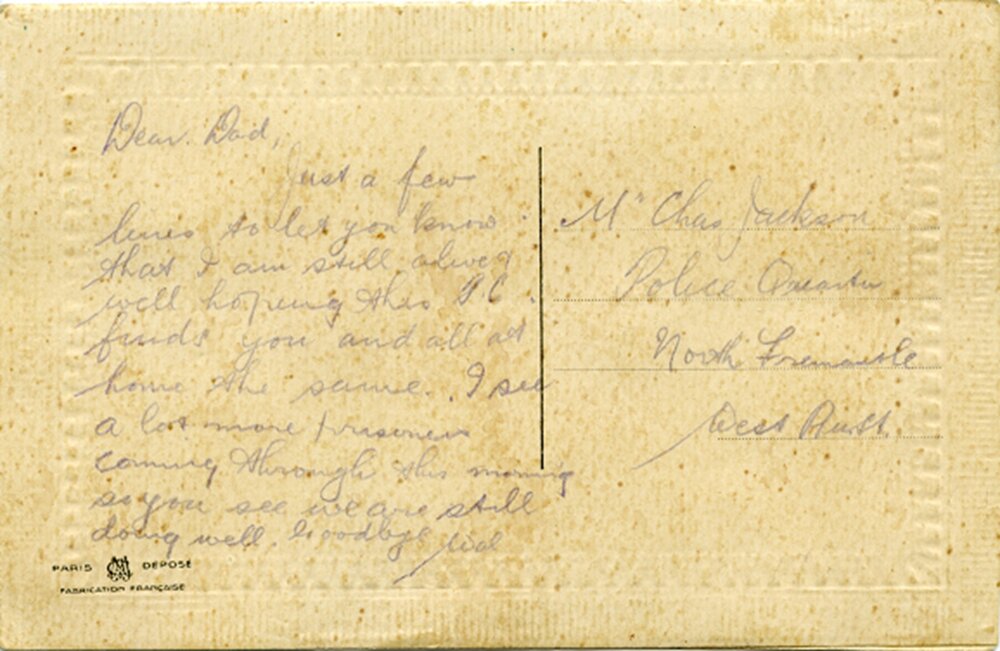 Dear Dad,
Just a few
lines to let you know
that I am still alive &
well hoping this P.C.
finds you and all at
home the same. I see
a lot more prisoners
coming through this morning
so you see we are still
doing well. Goodbye
PARIS DEPOSÉ
FABRICATION FRANÇAISE
Mr Chas Jackson
Police Quarters
North Fremantle
West Aust.